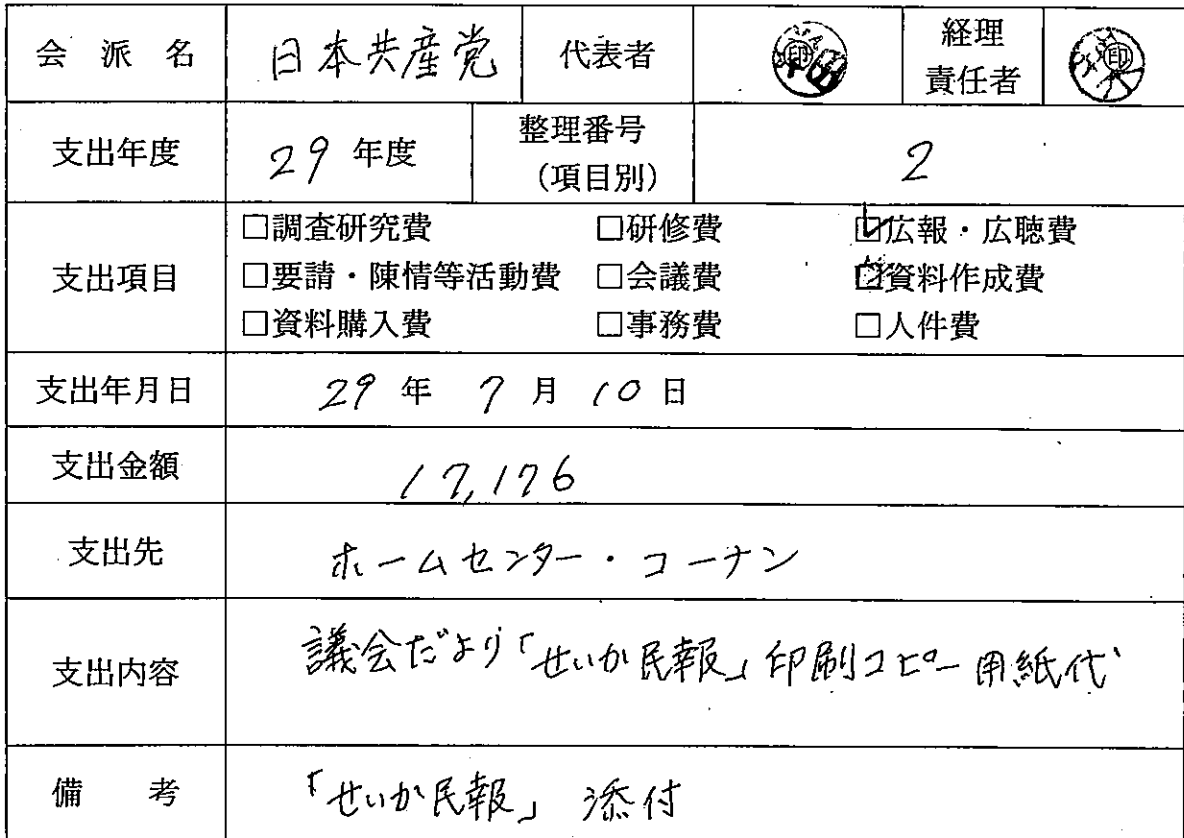 会派名 日本共産党 代表者 印 経理責任者 印
支出年度 29年度 整理番号(項目別) 2
支出項目
□調査研究費 □研修費 ☑広報・広聴費
□要請・陳情等活動費 □会議費 ☑資料作成費
□資料購入費 □事務費 □人件費
支出年月日 29年 7月 10日
支出金額 17,176
支出先 ホームセンター・コーナン
支出内容 議会だより「せいか民報」印刷コピー用紙代
備考 「せいか民報」添付